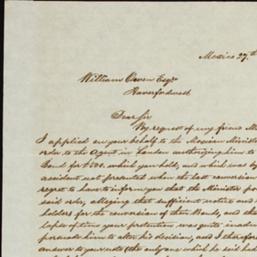 Mexico 27th
William Owen Esqr
Haverfordwest
Dear Sir
By request of my friend M
I applied on your behalf to the Mexican Minist
order to the Agent in London authorizing him to
Bond for £ which you hold, and which was by
accident not presented when the last conversion
regret to have to inform you that the Minister po
said order, alleging that sufficient notice and
holders for the conversion of their Bonds, and tha
lapse of time your pretention was quite inadm
persuade him to alter his decision, and I therefore
answer to your note the only one which he said he